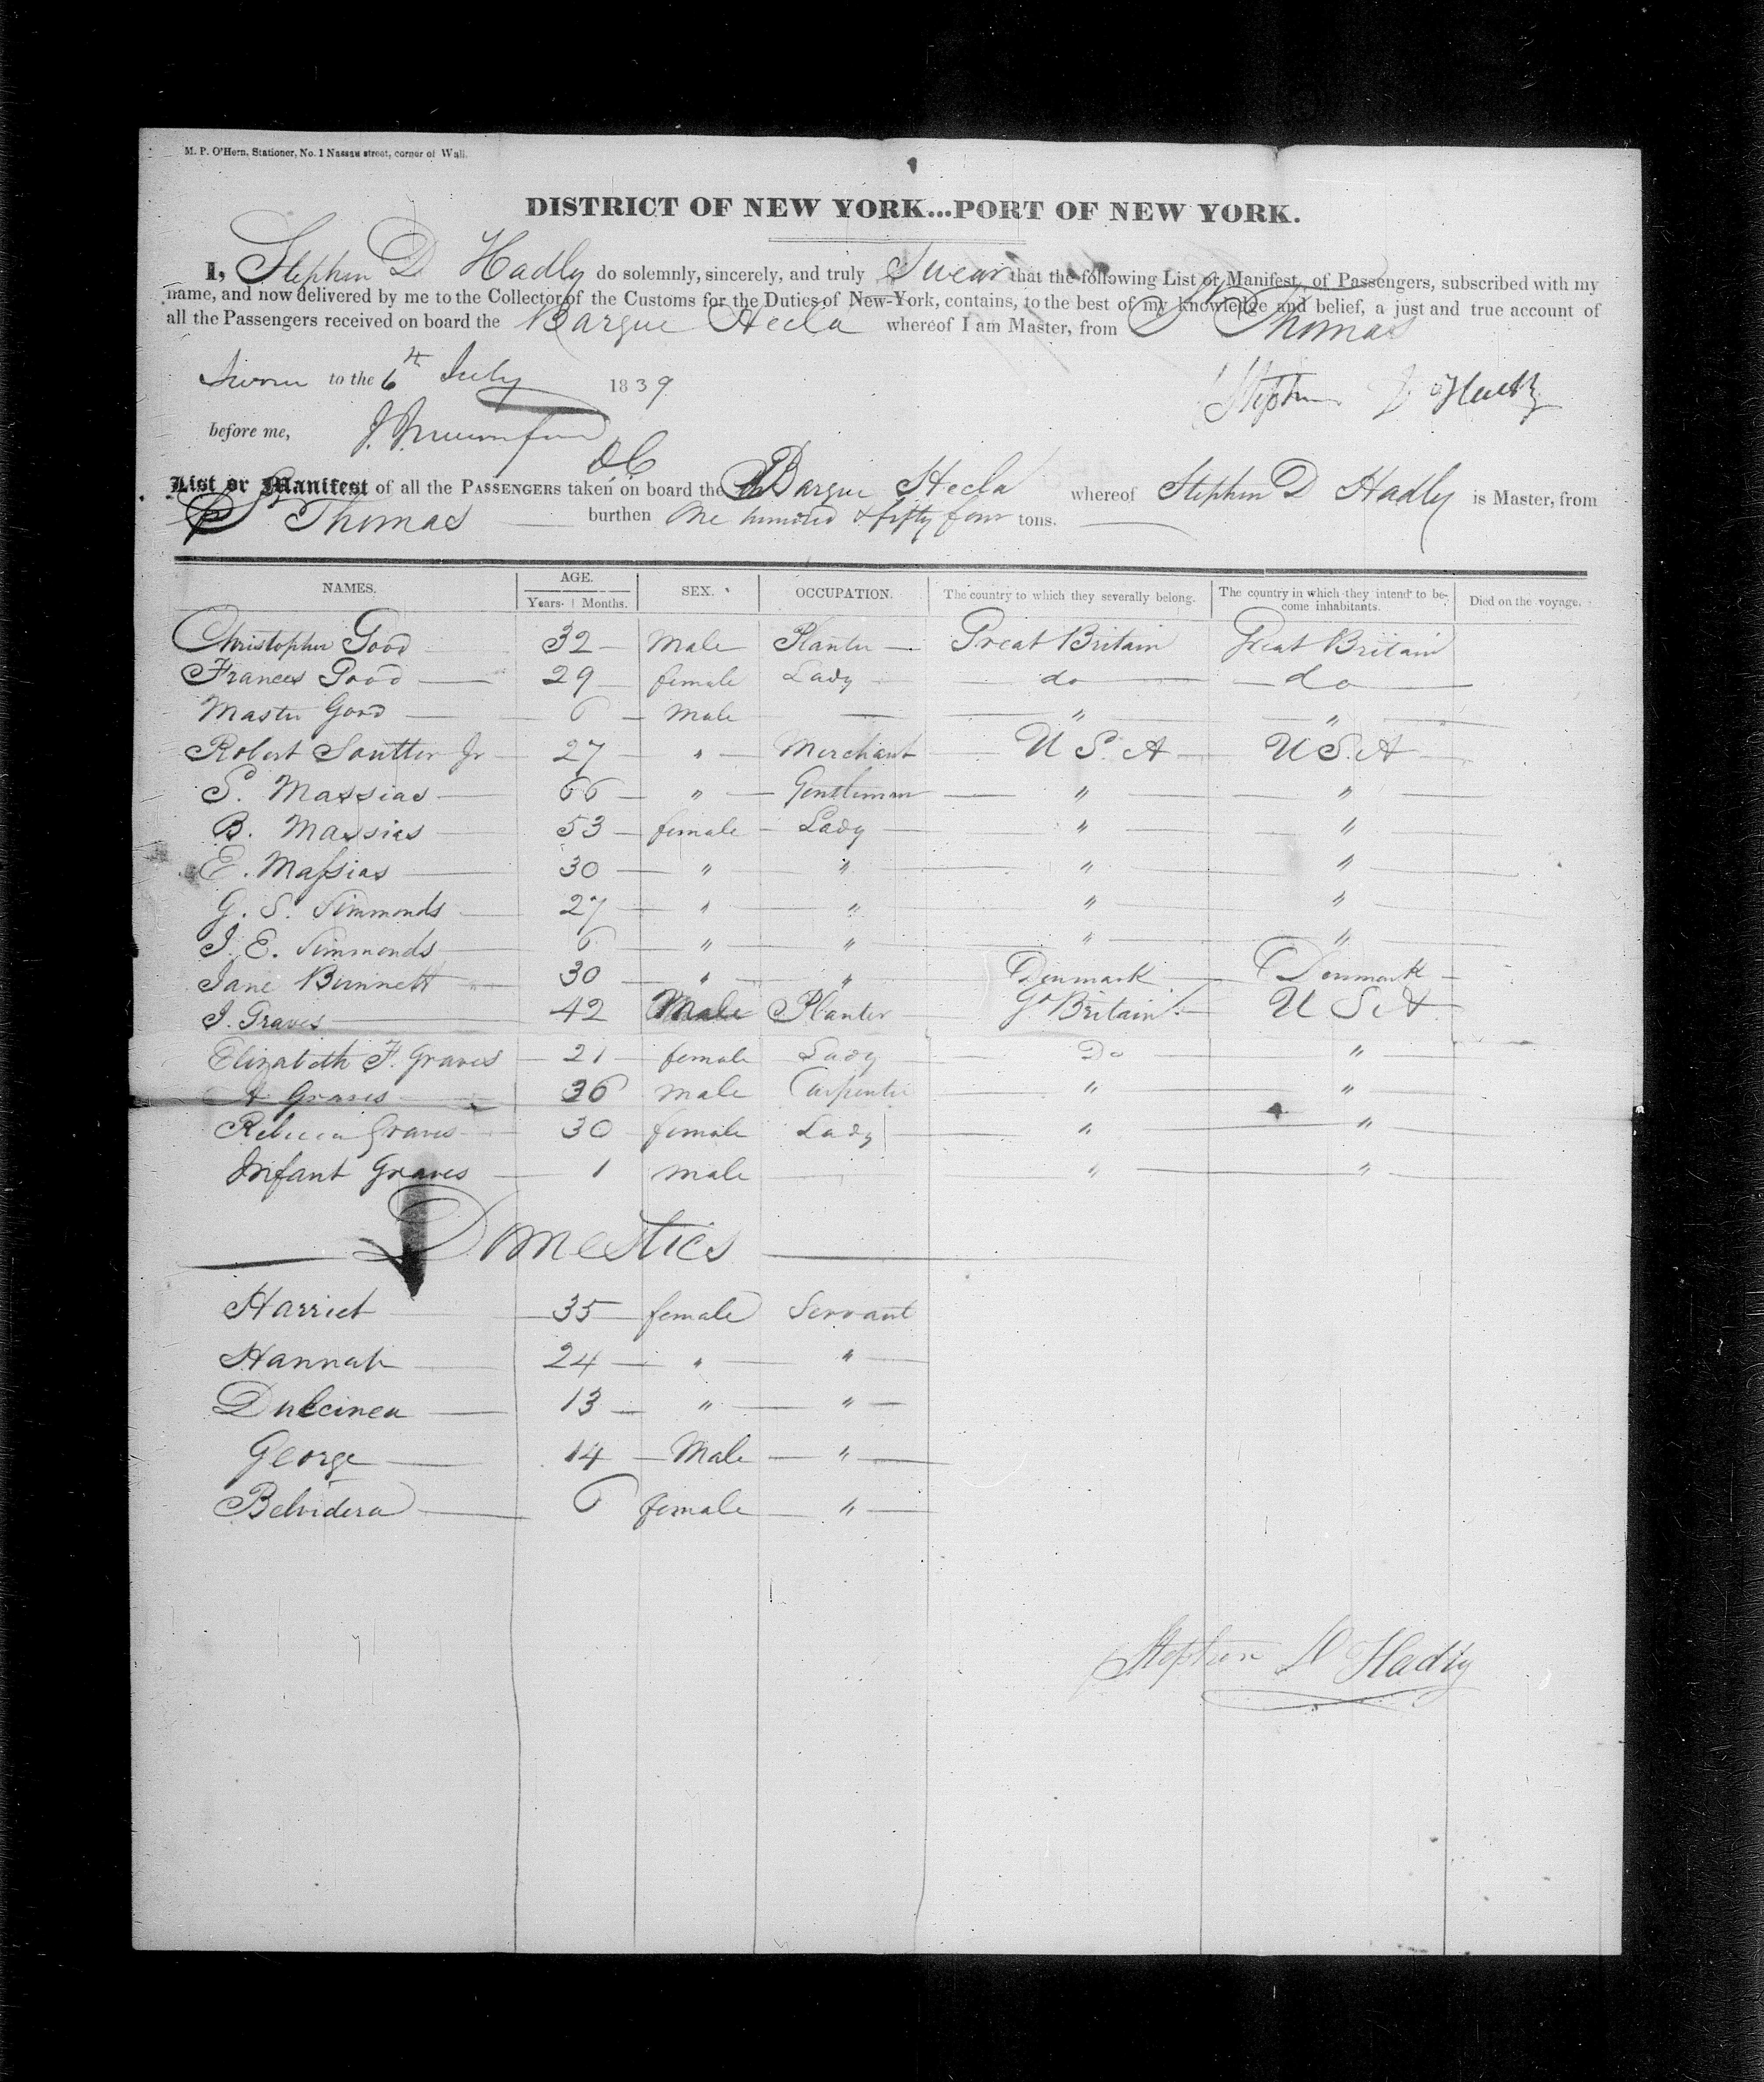 M. P. O'Hern, Stationer, No. 1 Nassau street, corner of Wall.
DISTRICT OF NEW YORK...PORT OF NEW YORK.
I, Stephen D Hadly do solemnly, sincerely, and truly Swear that the following List or Manifest, of Passengers, subscribed with my
name, and now delivered by me to the Collector of the Customs for the Duties of New-York, contains, to the best of my knowledge and belief, a just and true account of
all the Passengers received on board the Barque Hecla whereof I am Master, from St Thomas
Sworn to the 6th July 1839
Stephen D Hadly
before me,
DC
List or Manifest of all the PASSENGERS taken on board the Barque Hecla whereof Stephen D Hadly is Master, from
St Thomas burthen One hundred & fifty four tons.
NAMES. AGE. Years. Months. SEX. OCCUPATION. The country to which they severally belong. The country in which they intend to become inhabitants. Died on the voyage.
Christopher Good 32 Male Planter Great Britain Great Britain
Frances Good 29 female Lady do do
Master Good 6 Male — " "
Robert Soutter Jr 27 " Merchant U S. A U S. A
S. Massias 66 " Gentleman " "
B. Massias 53 female Lady " "
E. Massias 30 " " " "
G. S. Simmonds 27 " " " "
J. E. Simmonds 6 " " " "
Jane Binnett 30 " " Denmark Denmark
J. Graves 42 Male Planter Gt Britain U S A
Elizabeth F. Graves 21 female Lady Do "
A Graves 36 male Carpenter " "
Rebecca Graves 30 female Lady " "
Infant Graves 1 male — " "
Domestics
Harriet 35 female Servant
Hannah 24 " "
Dulcinea 13 " "
George 14 Male "
Belvidera 6 female "
Stephen D Hadly